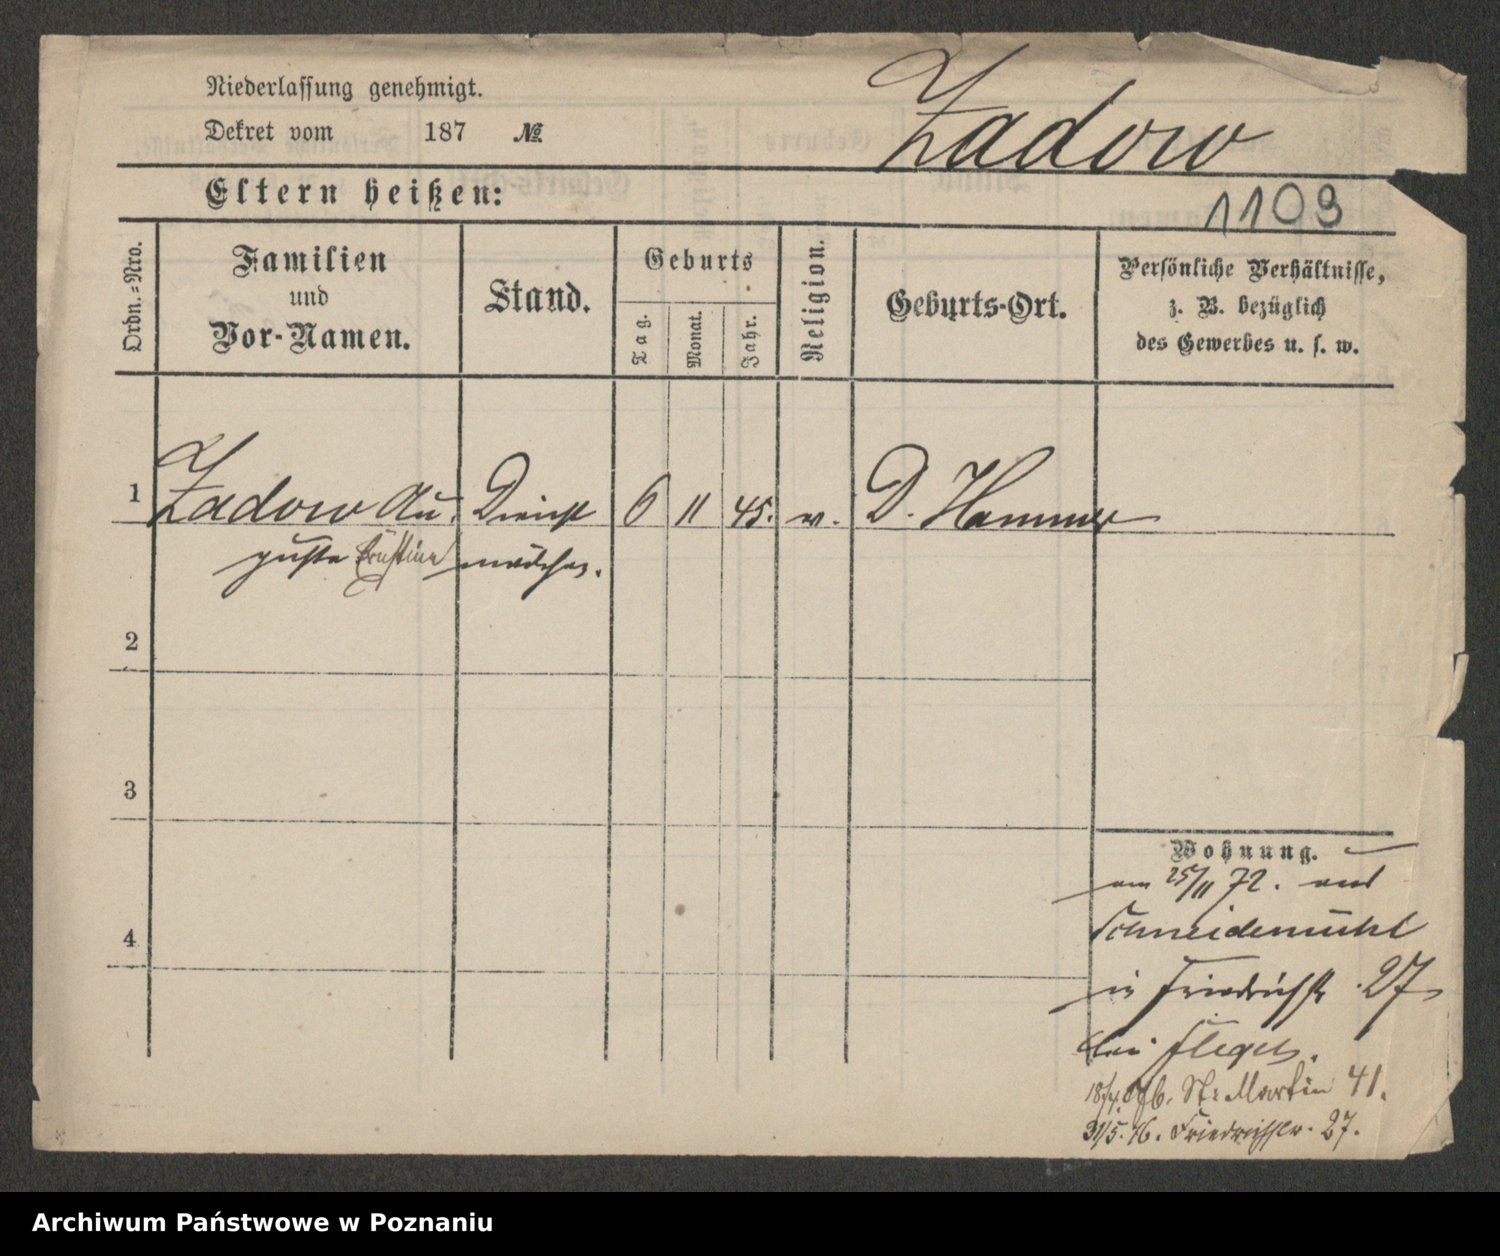 Niederlassung genehmigt.
Dekret vom 187 №
Zadow
Eltern heißen:
1109
Ordn.-Nro.
Familien
und
Vor-Namen.
Stand.
Geburts
Tag.
Monat.
Jahr.
Religion.
Geburts-Ort.
Persönliche Verhältnisse,
z. B. bezüglich
des Gewerbes u. s. w.
1 Zadow Au, Dienst 6 11 45. ev. D. Hammer
guste Ernstine mädchen.
2
3
Wohnung.
am 25/11 72. aus
Schneidemühl
4
in Friedrichstr. 27
bei Flegel.
18/4. 76. St. Martin 41.
31/5. 76. Friedrichstr. 27.
Archiwum Państwowe w Poznaniu